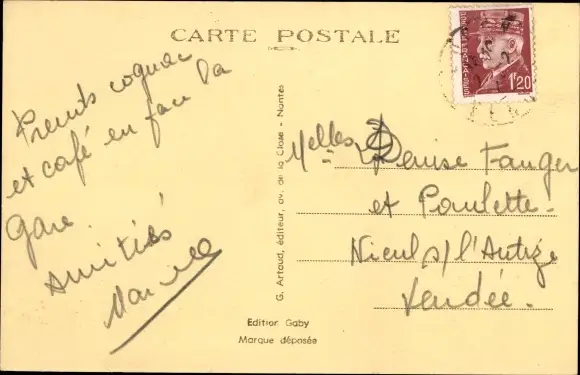 CARTE POSTALE
1F20
Prends cognac
et café en face la
Gare.
Amitiés
Marcelle
G. Artaud, éditeur, av. de la Close - Nantes
Edition Gaby
Marque déposée
Melles Denise Fauger
et Paulette.
Nieul s/ l'Autize
Vendée.